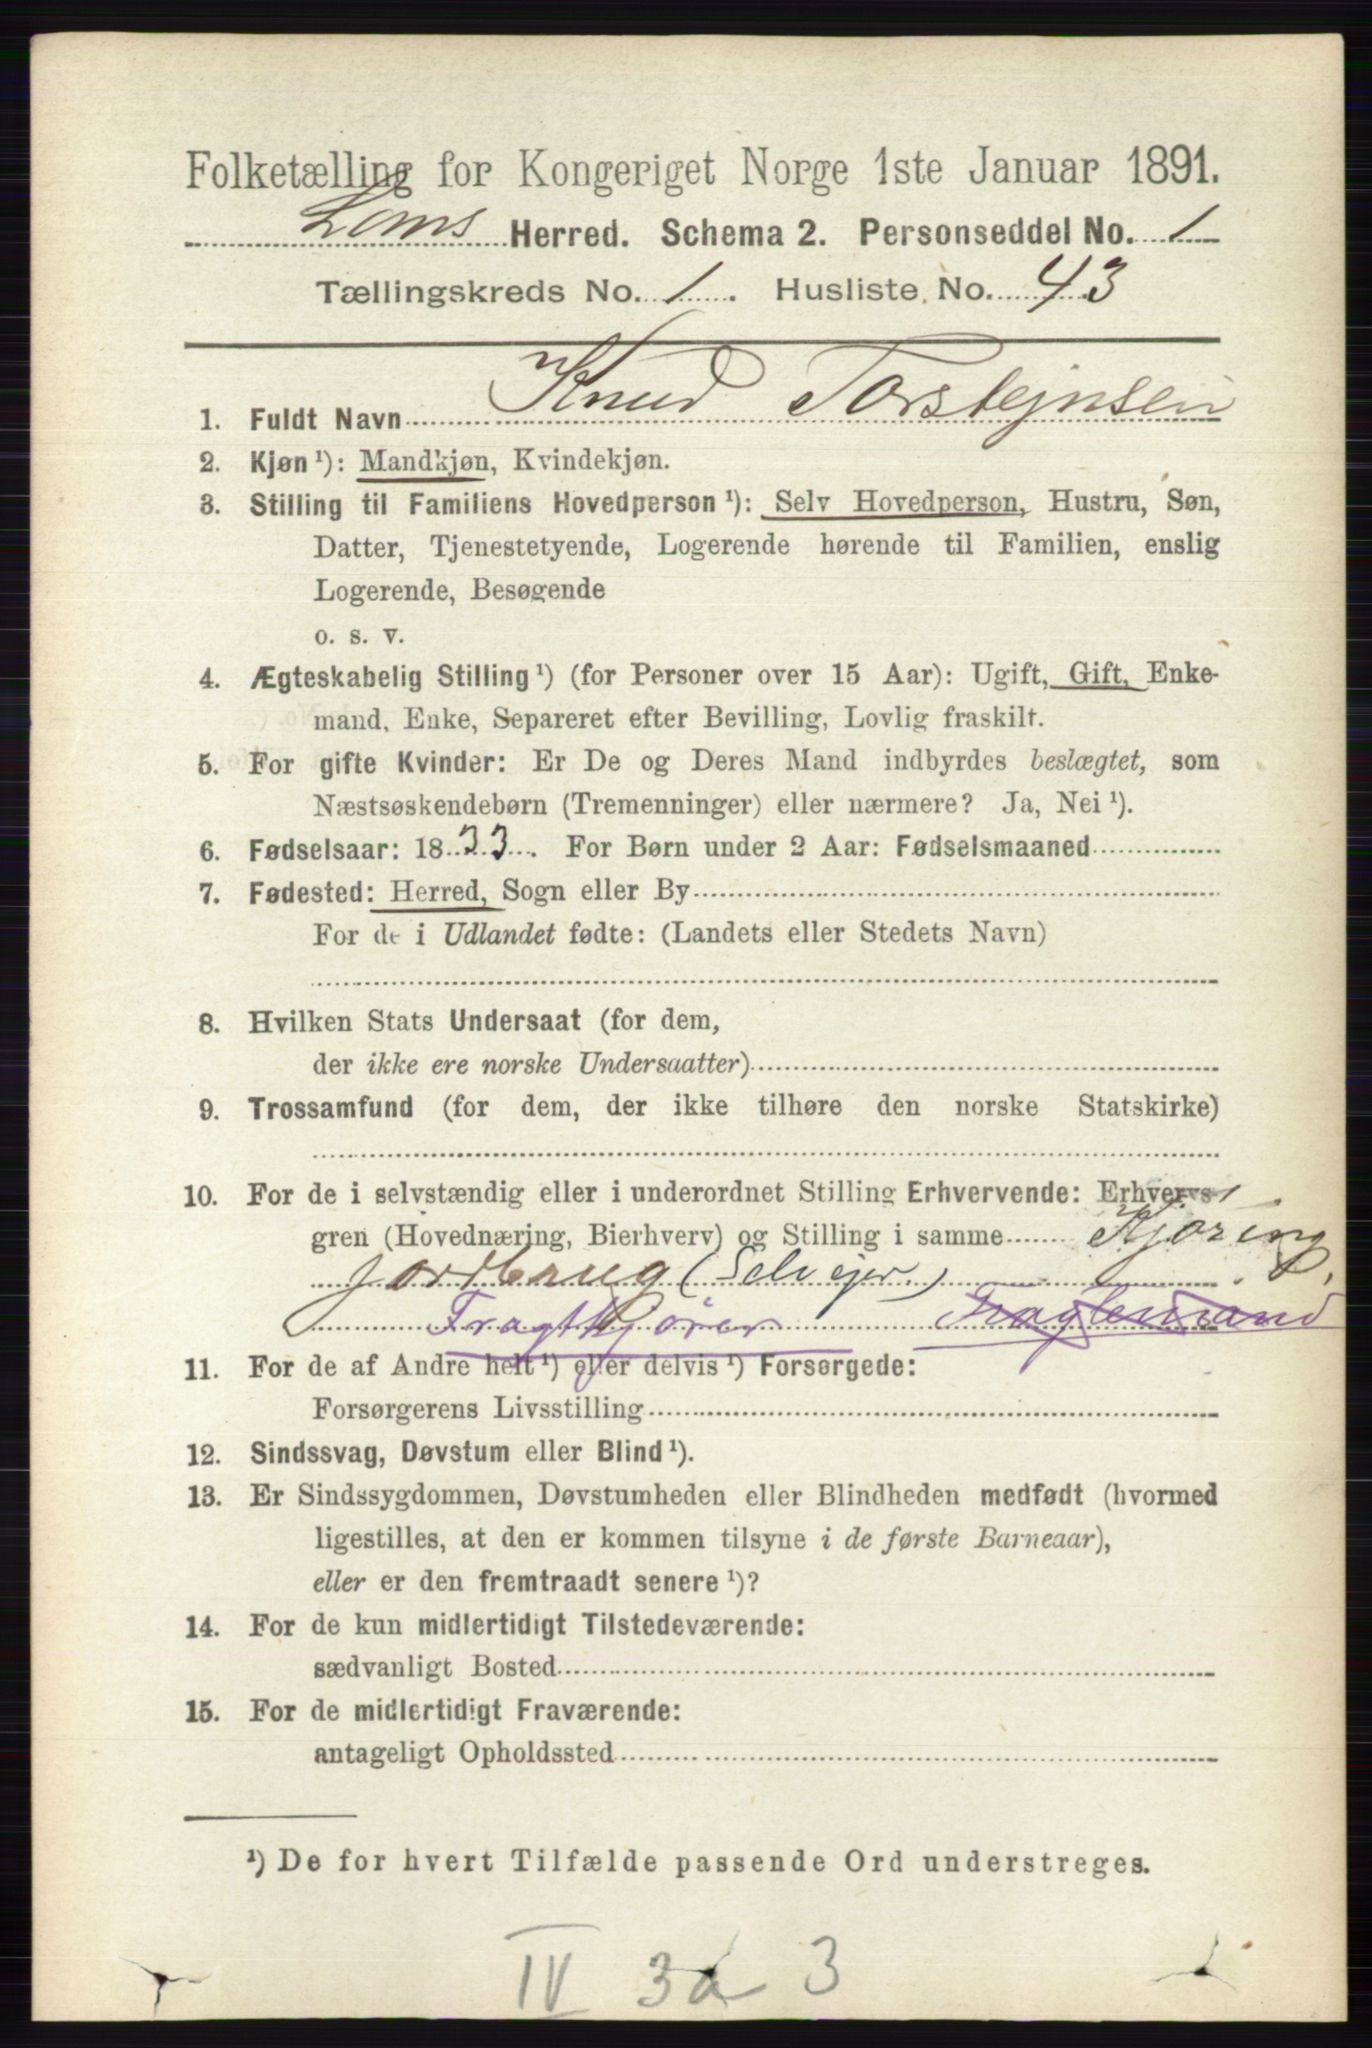 Folketælling for Kongeriget Norge 1ste Januar 1891.
Loms Herred. Schema 2. Personseddel No. 1
Tællingskreds No. 1. Husliste No. 43
1. Fuldt Navn Knud Torstejnsen
2. Kjøn ¹): Mandkjøn, Kvindekjøn.
3. Stilling til Familiens Hovedperson ¹): Selv Hovedperson, Hustru, Søn,
Datter, Tjenestetyende, Logerende hørende til Familien, enslig
Logerende, Besøgende
o. s. v.
4. Ægteskabelig Stilling ¹) (for Personer over 15 Aar): Ugift, Gift, Enke-
mand, Enke, Separeret efter Bevilling, Lovlig fraskilt.
5. For gifte Kvinder: Er De og Deres Mand indbyrdes beslægtet, som
Næstsøskendebørn (Tremenninger) eller nærmere? Ja, Nei ¹).
6. Fødselsaar: 1833. For Børn under 2 Aar: Fødselsmaaned
7. Fødested: Herred, Sogn eller By
For de i Udlandet fødte: (Landets eller Stedets Navn)
8. Hvilken Stats Undersaat (for dem,
der ikke ere norske Undersaatter)
9. Trossamfund (for dem, der ikke tilhøre den norske Statskirke)
10. For de i selvstændig eller i underordnet Stilling Erhvervende: Erhvervs-
gren (Hovednæring, Bierhverv) og Stilling i samme Kjøring
Jordbrug (Selvejer.)
Fragtkjører Fragtemand
11. For de af Andre helt ¹) eller delvis ¹) Forsørgede:
Forsørgerens Livsstilling
12. Sindssvag, Døvstum eller Blind ¹).
13. Er Sindssygdommen, Døvstumheden eller Blindheden medfødt (hvormed
ligestilles, at den er kommen tilsyne i de første Barneaar),
eller er den fremtraadt senere ¹)?
14. For de kun midlertidigt Tilstedeværende:
sædvanligt Bosted
15. For de midlertidigt Fraværende:
antageligt Opholdssted
¹) De for hvert Tilfælde passende Ord understreges.
IV 3a 3